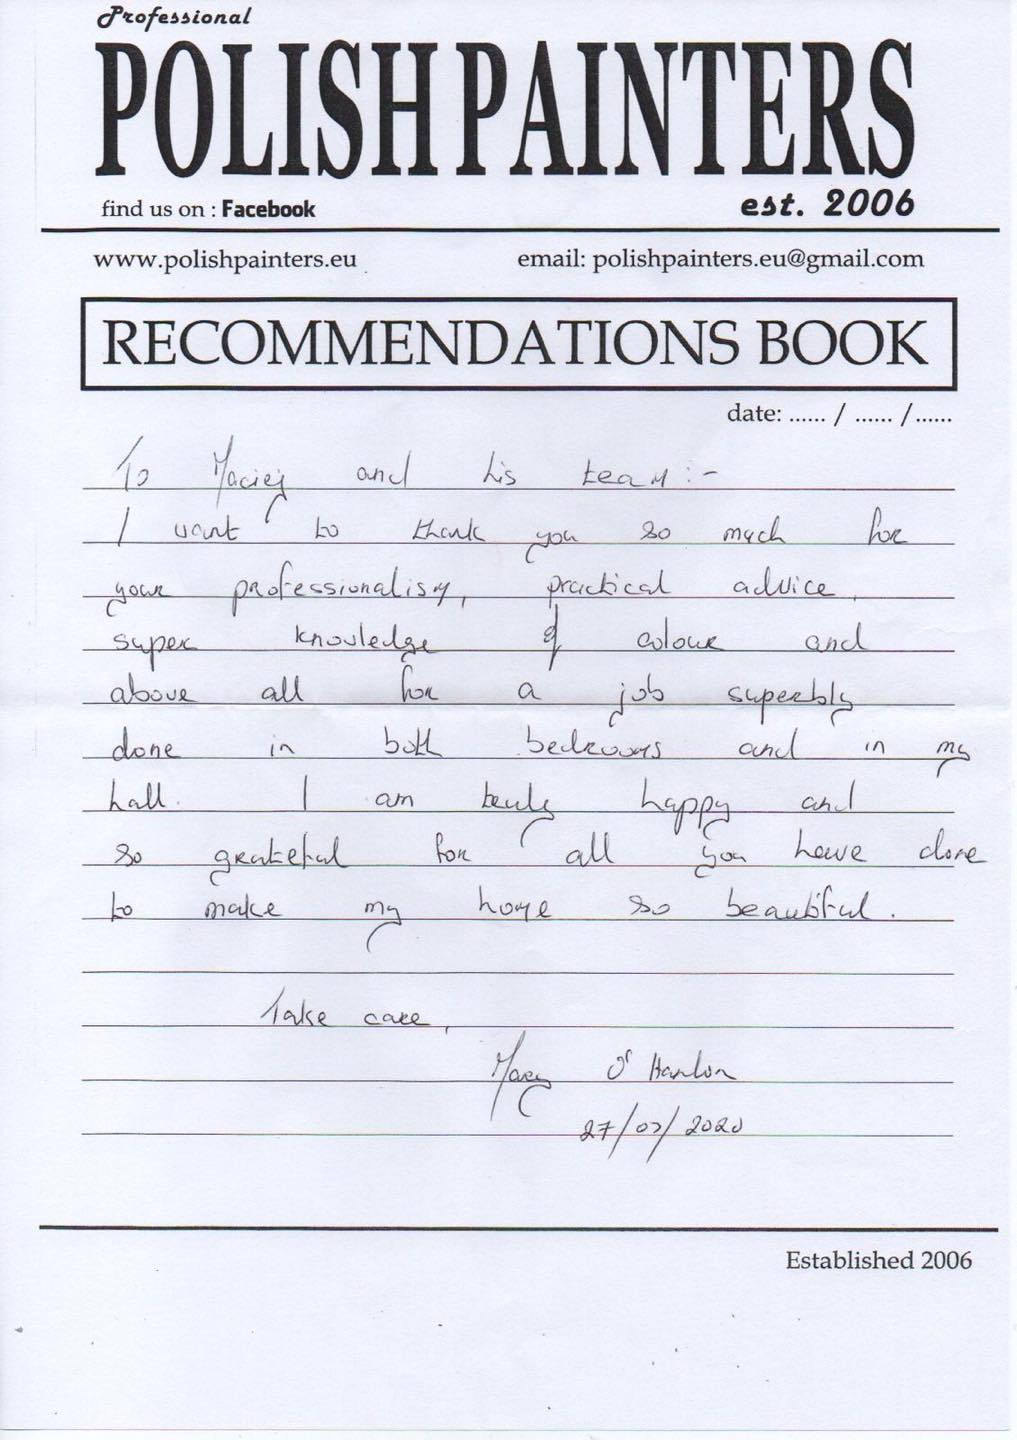 Professional
POLISH PAINTERS
find us on : Facebook
est. 2006
www.polishpainters.eu
email: polishpainters.eu@gmail.com
RECOMMENDATIONS BOOK
date: ...... / ...... /......
To Maciej and his team:-
I want to thank you so much for
your professionalism, practical advice,
super knowledge of colour and
above all for a job superbly
done in both bedrooms and in my
hall. I am truly happy and
so grateful for all you have done
to make my home so beautiful.
Take care,
Mary O' Hanlon
27/07/2020
Established 2006